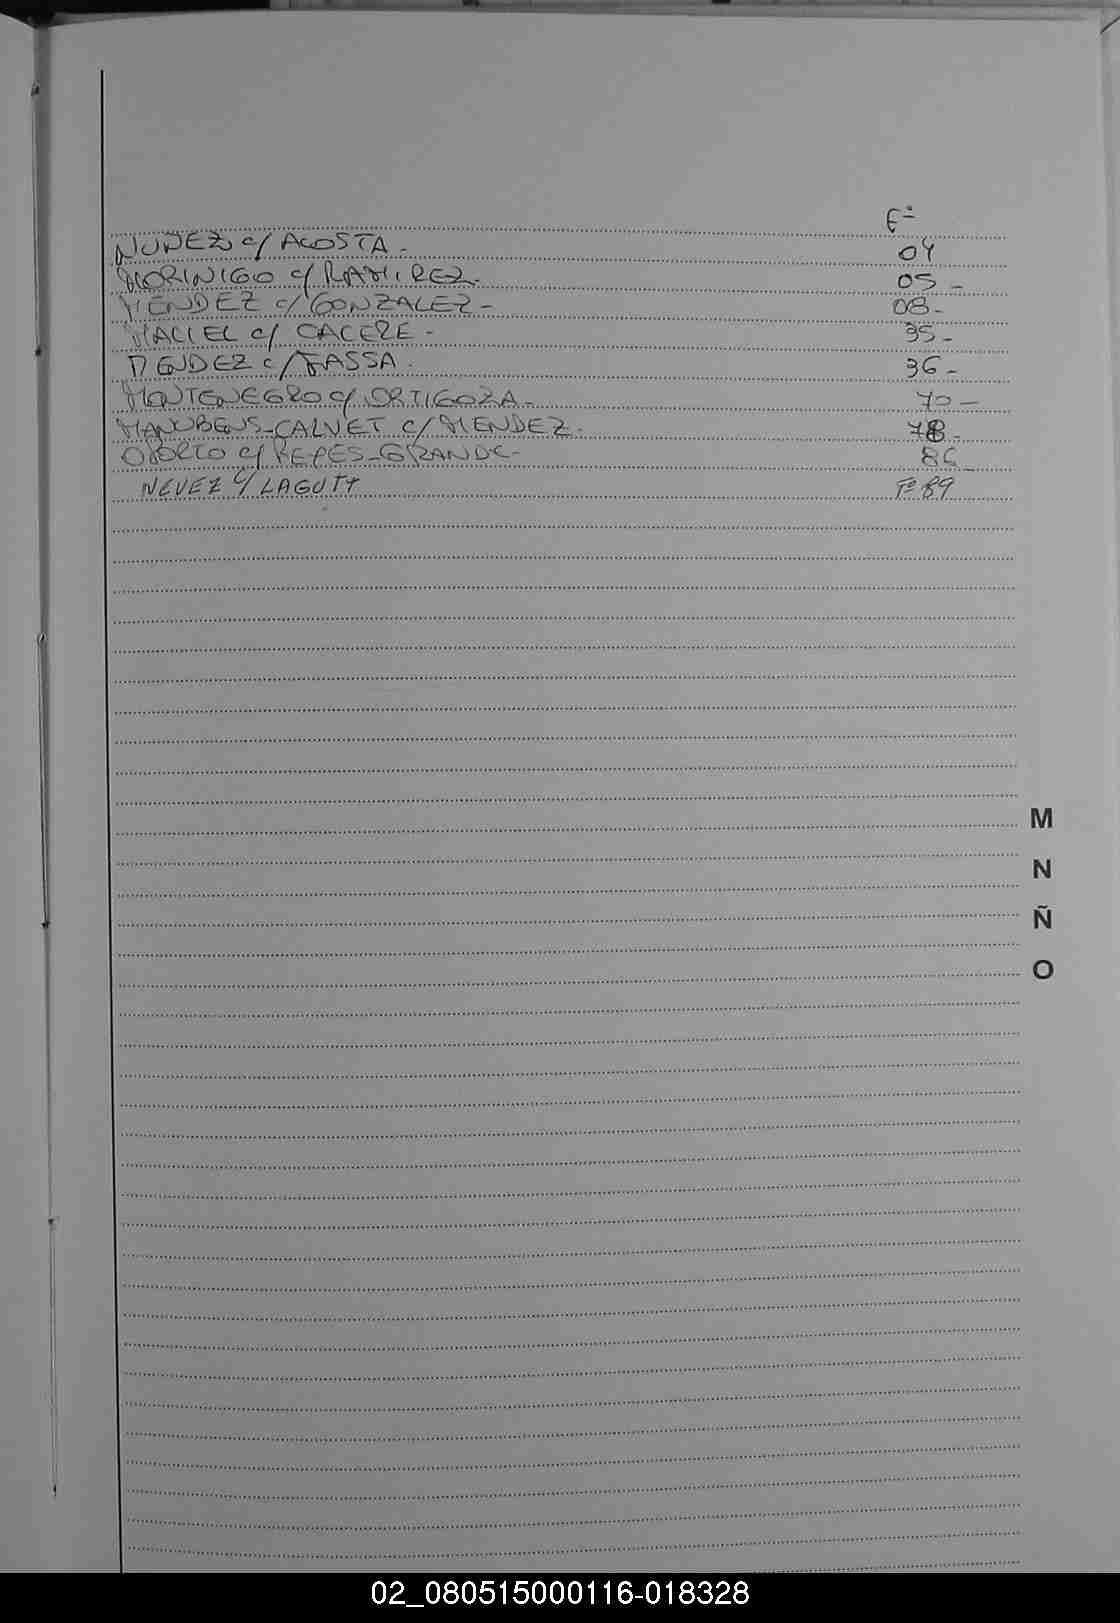 Fº
NUÑEZ c/ ACOSTA. 04
MORINIGO c/ RAMIREZ. 05 -
MENDEZ c/ GONZALEZ - 08 -
MACIEL c/ CACERE - 35 -
MENDEZ c/ FASSA. 36 -
MONTENEGRO c/ ORTIGOZA - 70 -
MANUBENS-CALVET c/ MENDEZ. 78 -
OPORTO c/ REYES-GRANDE - 86 -
NEVEZ c/ Fº 89
M
N
Ñ
O
02_080515000116-018328